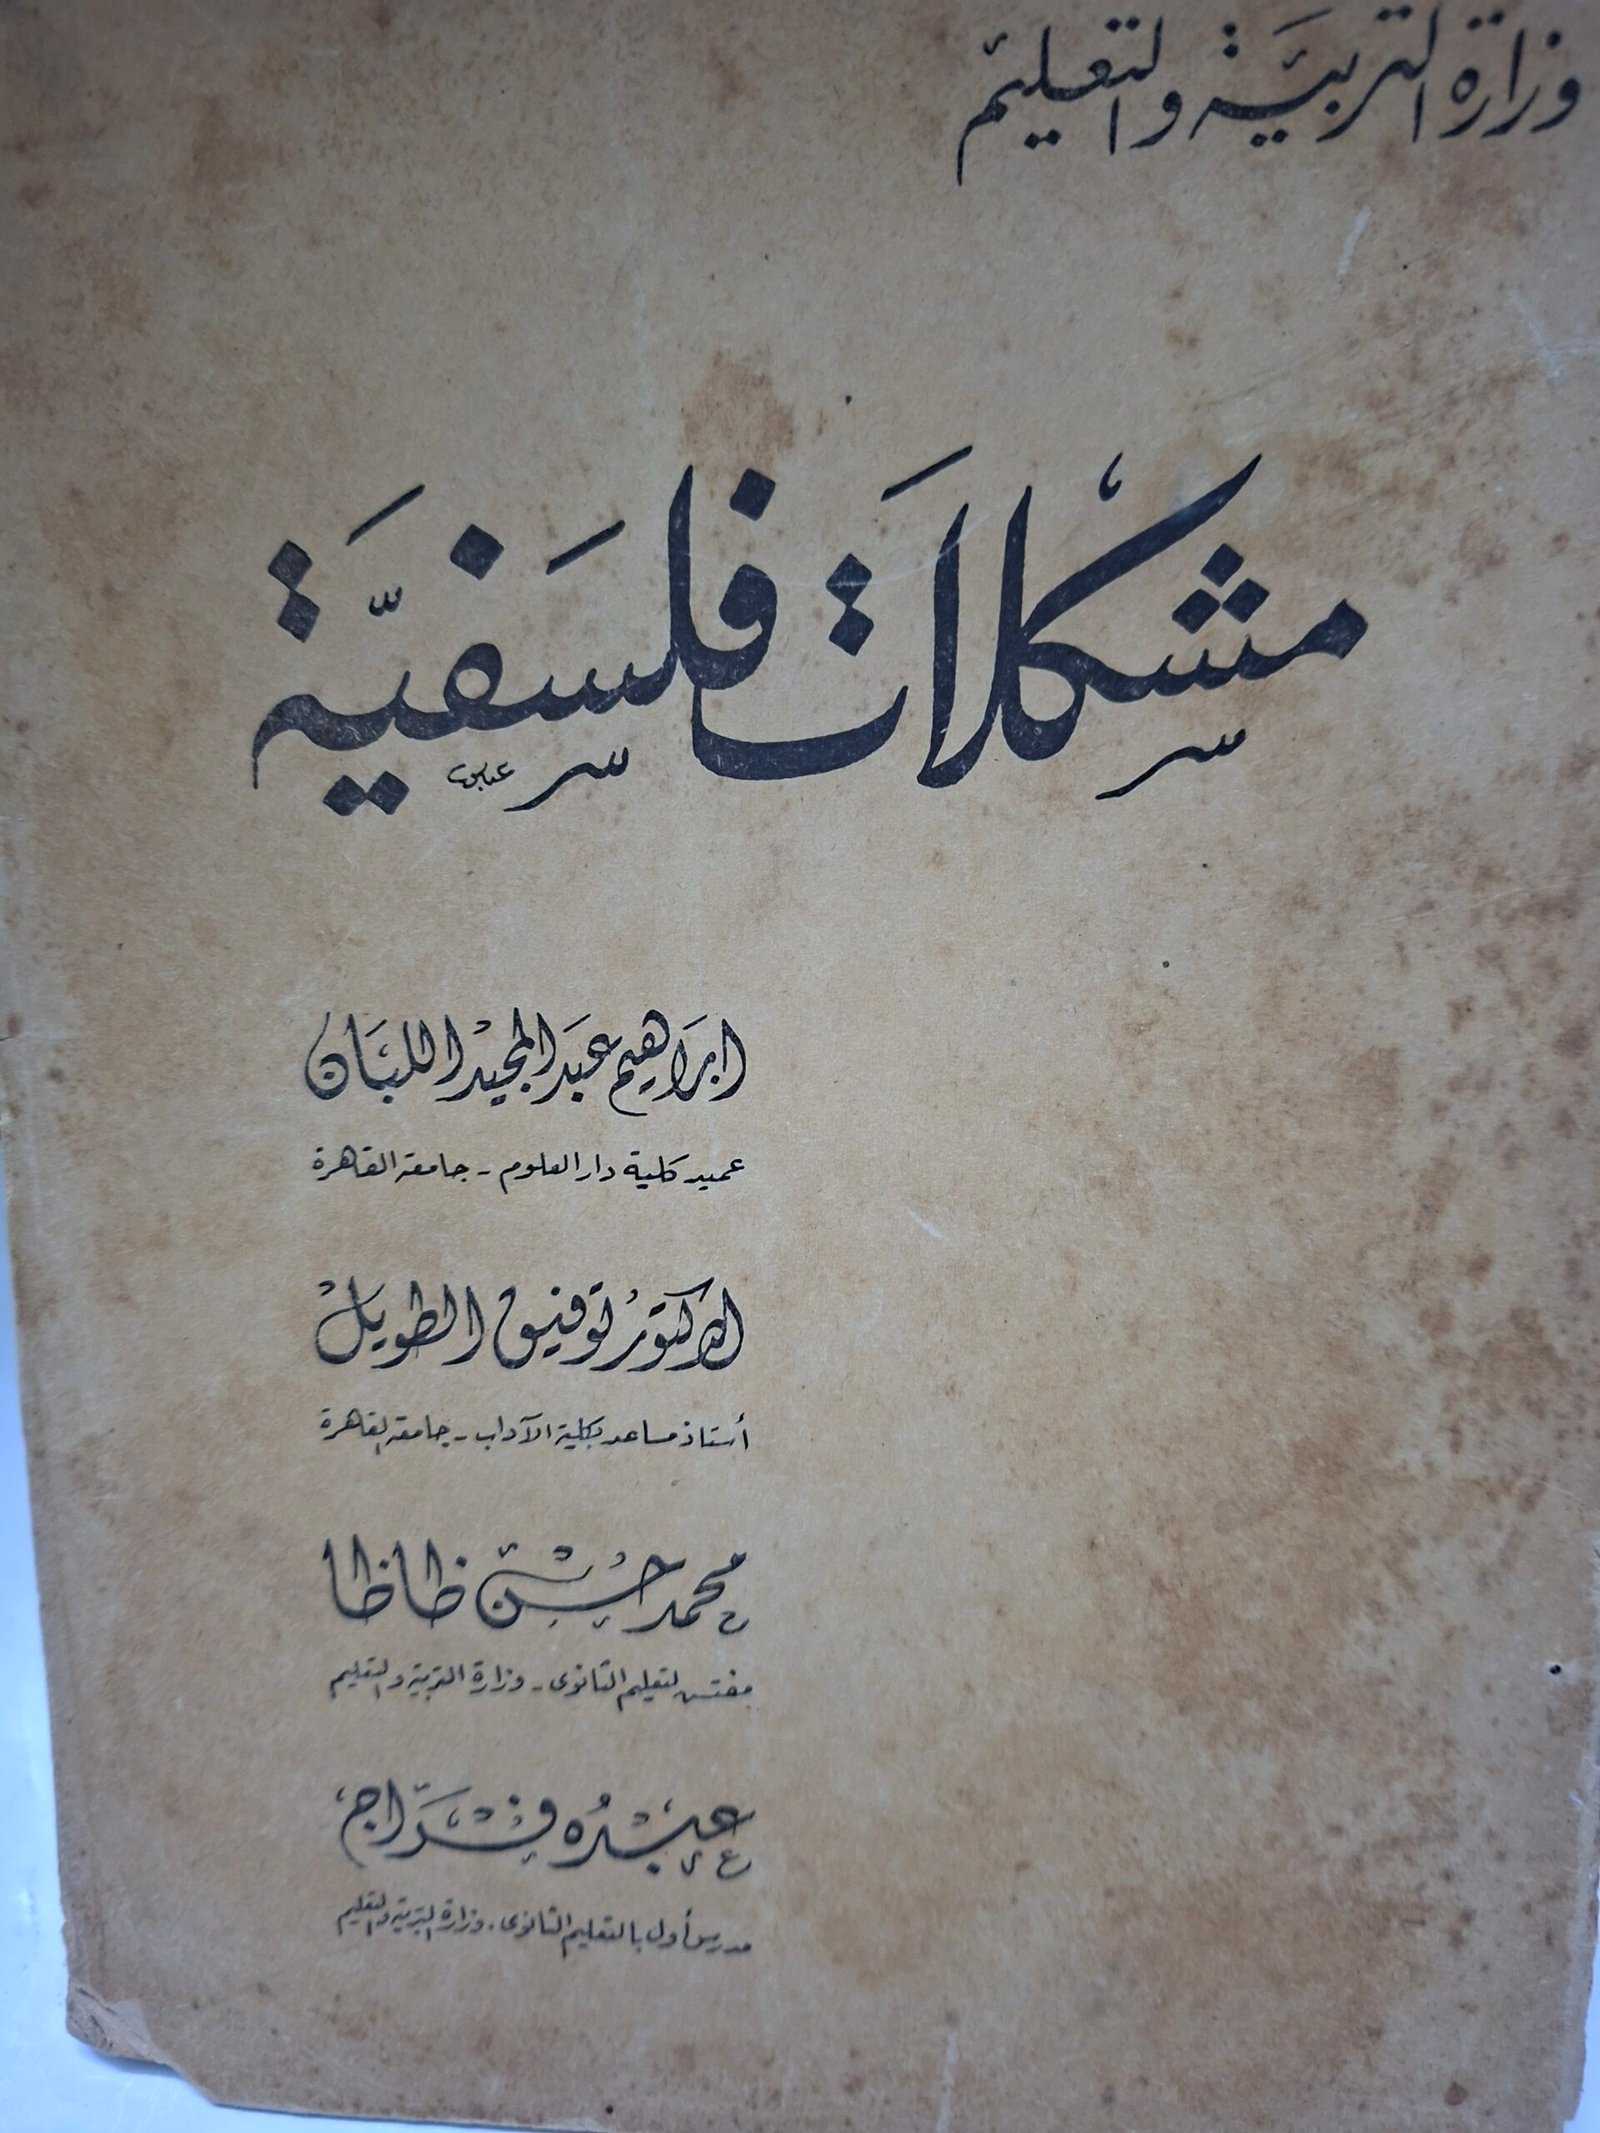 وزارة التربية والتعليم
مشكلات فلسفية
ابراهيم عبد المجيد اللبان
عميد كلية دار العلوم - جامعة القاهرة
الدكتور توفيق الطويل
أستاذ مساعد بكلية الآداب - جامعة القاهرة
محمد حسن ظاظا
مفتش التعليم الثانوى - وزارة التربية والتعليم
عبده فراج
مدرس أول بالتعليم الثانوى - وزارة التربية والتعليم